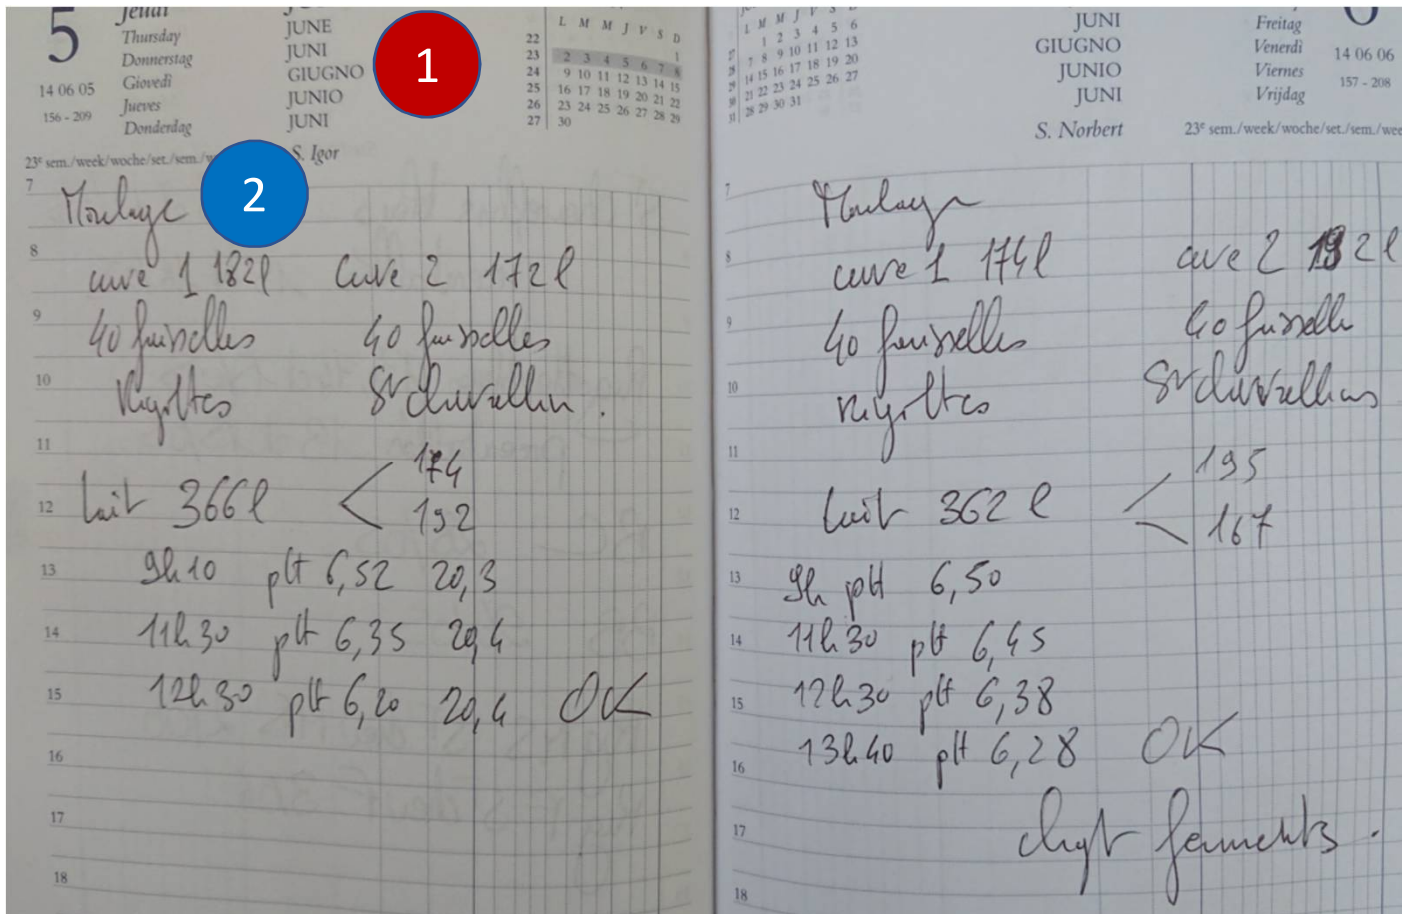 5
Jeudi
Thursday
Donnerstag
Giovedì
Jueves
Donderdag
JUNE
JUNI
GIUGNO
JUNIO
JUNI
14 06 05
156 - 209
S. Igor
1
L M M J V S D
22 1
23 2 3 4 5 6 7 8
24 9 10 11 12 13 14 15
25 16 17 18 19 20 21 22
26 23 24 25 26 27 28 29
27 30
23e sem./week/woche/set./sem./w
2
7
Moulage
8
cuve 1 182l cuve 2 172l
9
40 faisselles 40 faisselles
10
Rigottes St Marcellin.
11
174
12 lait 366l < 192
13 9h10 pH 6,52 20,3
14 11h30 pH 6,35 20,4
15 12h30 pH 6,20 20,4 OK
16
17
18
L M M J V S D
1 2 3 4 5 6
7 8 9 10 11 12 13
14 15 16 17 18 19 20
21 22 23 24 25 26 27
31 28 29 30 31
JUNI
GIUGNO
JUNIO
JUNI
Freitag
Venerdì
Viernes
Vrijdag
14 06 06
157 - 208
S. Norbert
23e sem./week/woche/set./sem./wee
7
Moulage
8 cuve 1 174l cuve 2 192l
9
40 faisselles 40 faisselle
10
rigottes St Marcellins
11
195
12 lait 362l < 167
13 9h pH 6,50
14 11h30 pH 6,45
15 12h30 pH 6,38
13h40 pH 6,28 OK
16
17 chgt ferments.
18